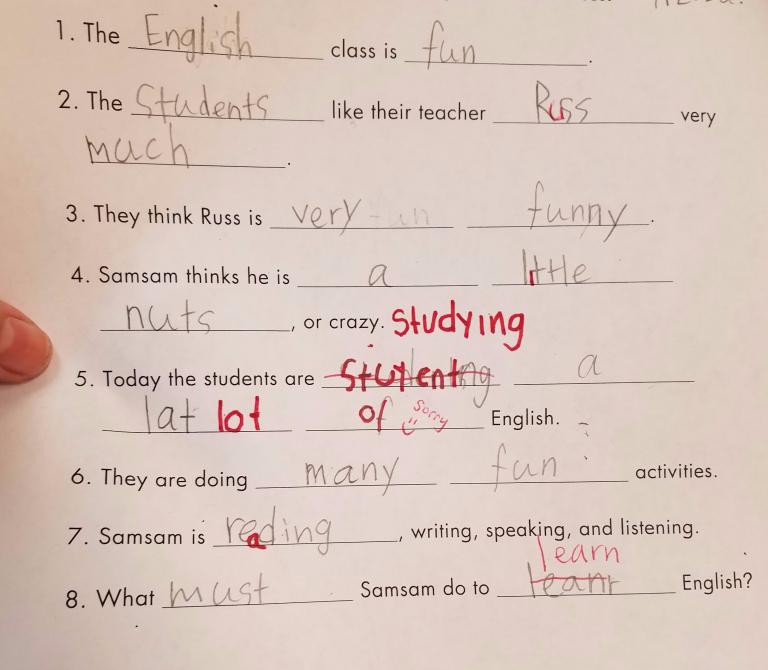 1. The English class is fun.
2. The Students like their teacher Russ very
much.
3. They think Russ is very funny.
4. Samsam thinks he is a little
nuts, or crazy. Studying
5. Today the students are a
lat lot of sorry English.
6. They are doing many fun activities.
7. Samsam is reading, writing, speaking, and listening.
learn
8. What must Samsam do to leanr English?